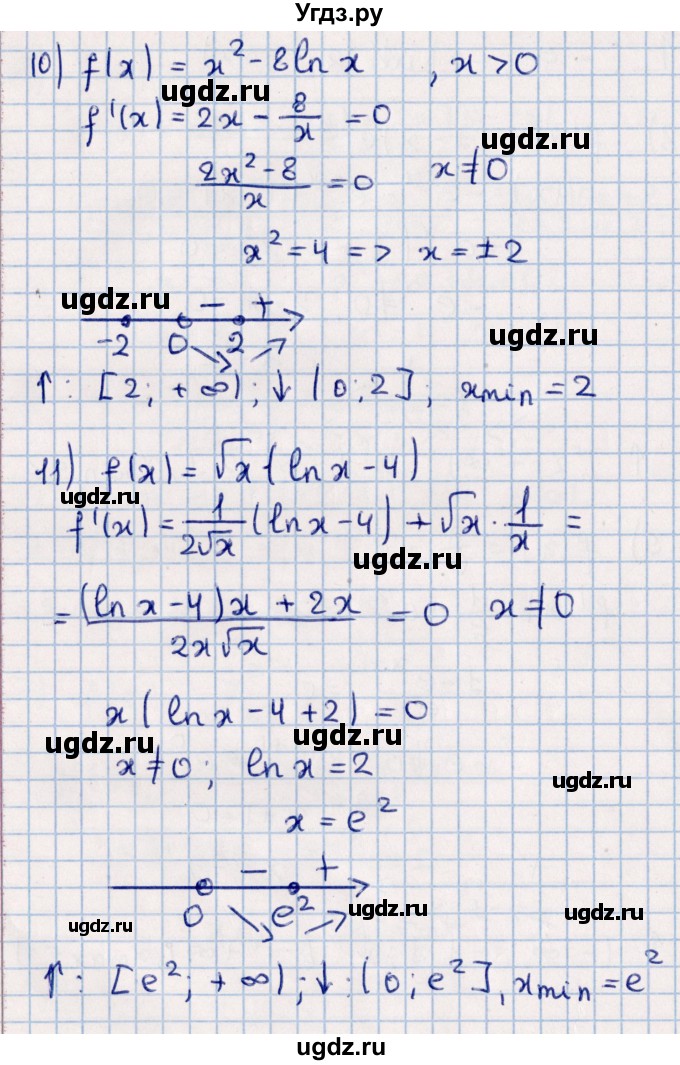 Угдз.ру
10) f(x) = x² - 8 ln x , x > 0
ugdz.ru
f'(x) = 2x - 8/x = 0
ugdz.ru
(2x² - 8)/x = 0 x ≠ 0
x² = 4 => x = ±2
ugdz.ru
- +
ugdz.ru
-2 0 2
↑: [2; +∞); ↓ (0; 2]; xmin = 2
11) f(x) = √x (ln x - 4)
ugdz.ru
f'(x) = 1/(2√x) (ln x - 4) + √x · 1/x =
ugdz.ru
= ((ln x - 4)x + 2x)/(2x√x) = 0 x ≠ 0
x (ln x - 4 + 2) = 0
ugdz.ru ugdz.ru
x ≠ 0; ln x = 2
ugdz.ru
x = e²
- +
0 e²
ugdz.ru ugdz.ru ugdz.ru
↑: [e²; +∞); ↓: (0; e²], xmin = e²
ugdz.ru